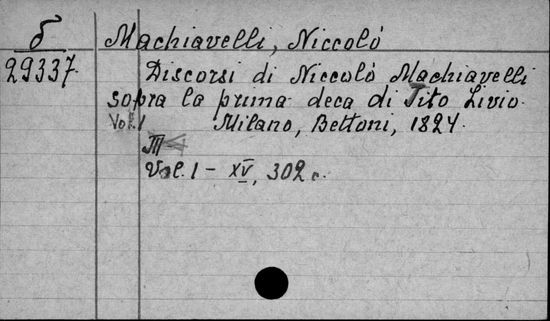 б
29337
Machiavelli, Niccoló
Discorsi di Niccoló Machiavelli
sopra la prima deca di Tito Livio
Vol. 1 Milano, Bettoni, 1824.
Vol. 1 – XV, 302 c.